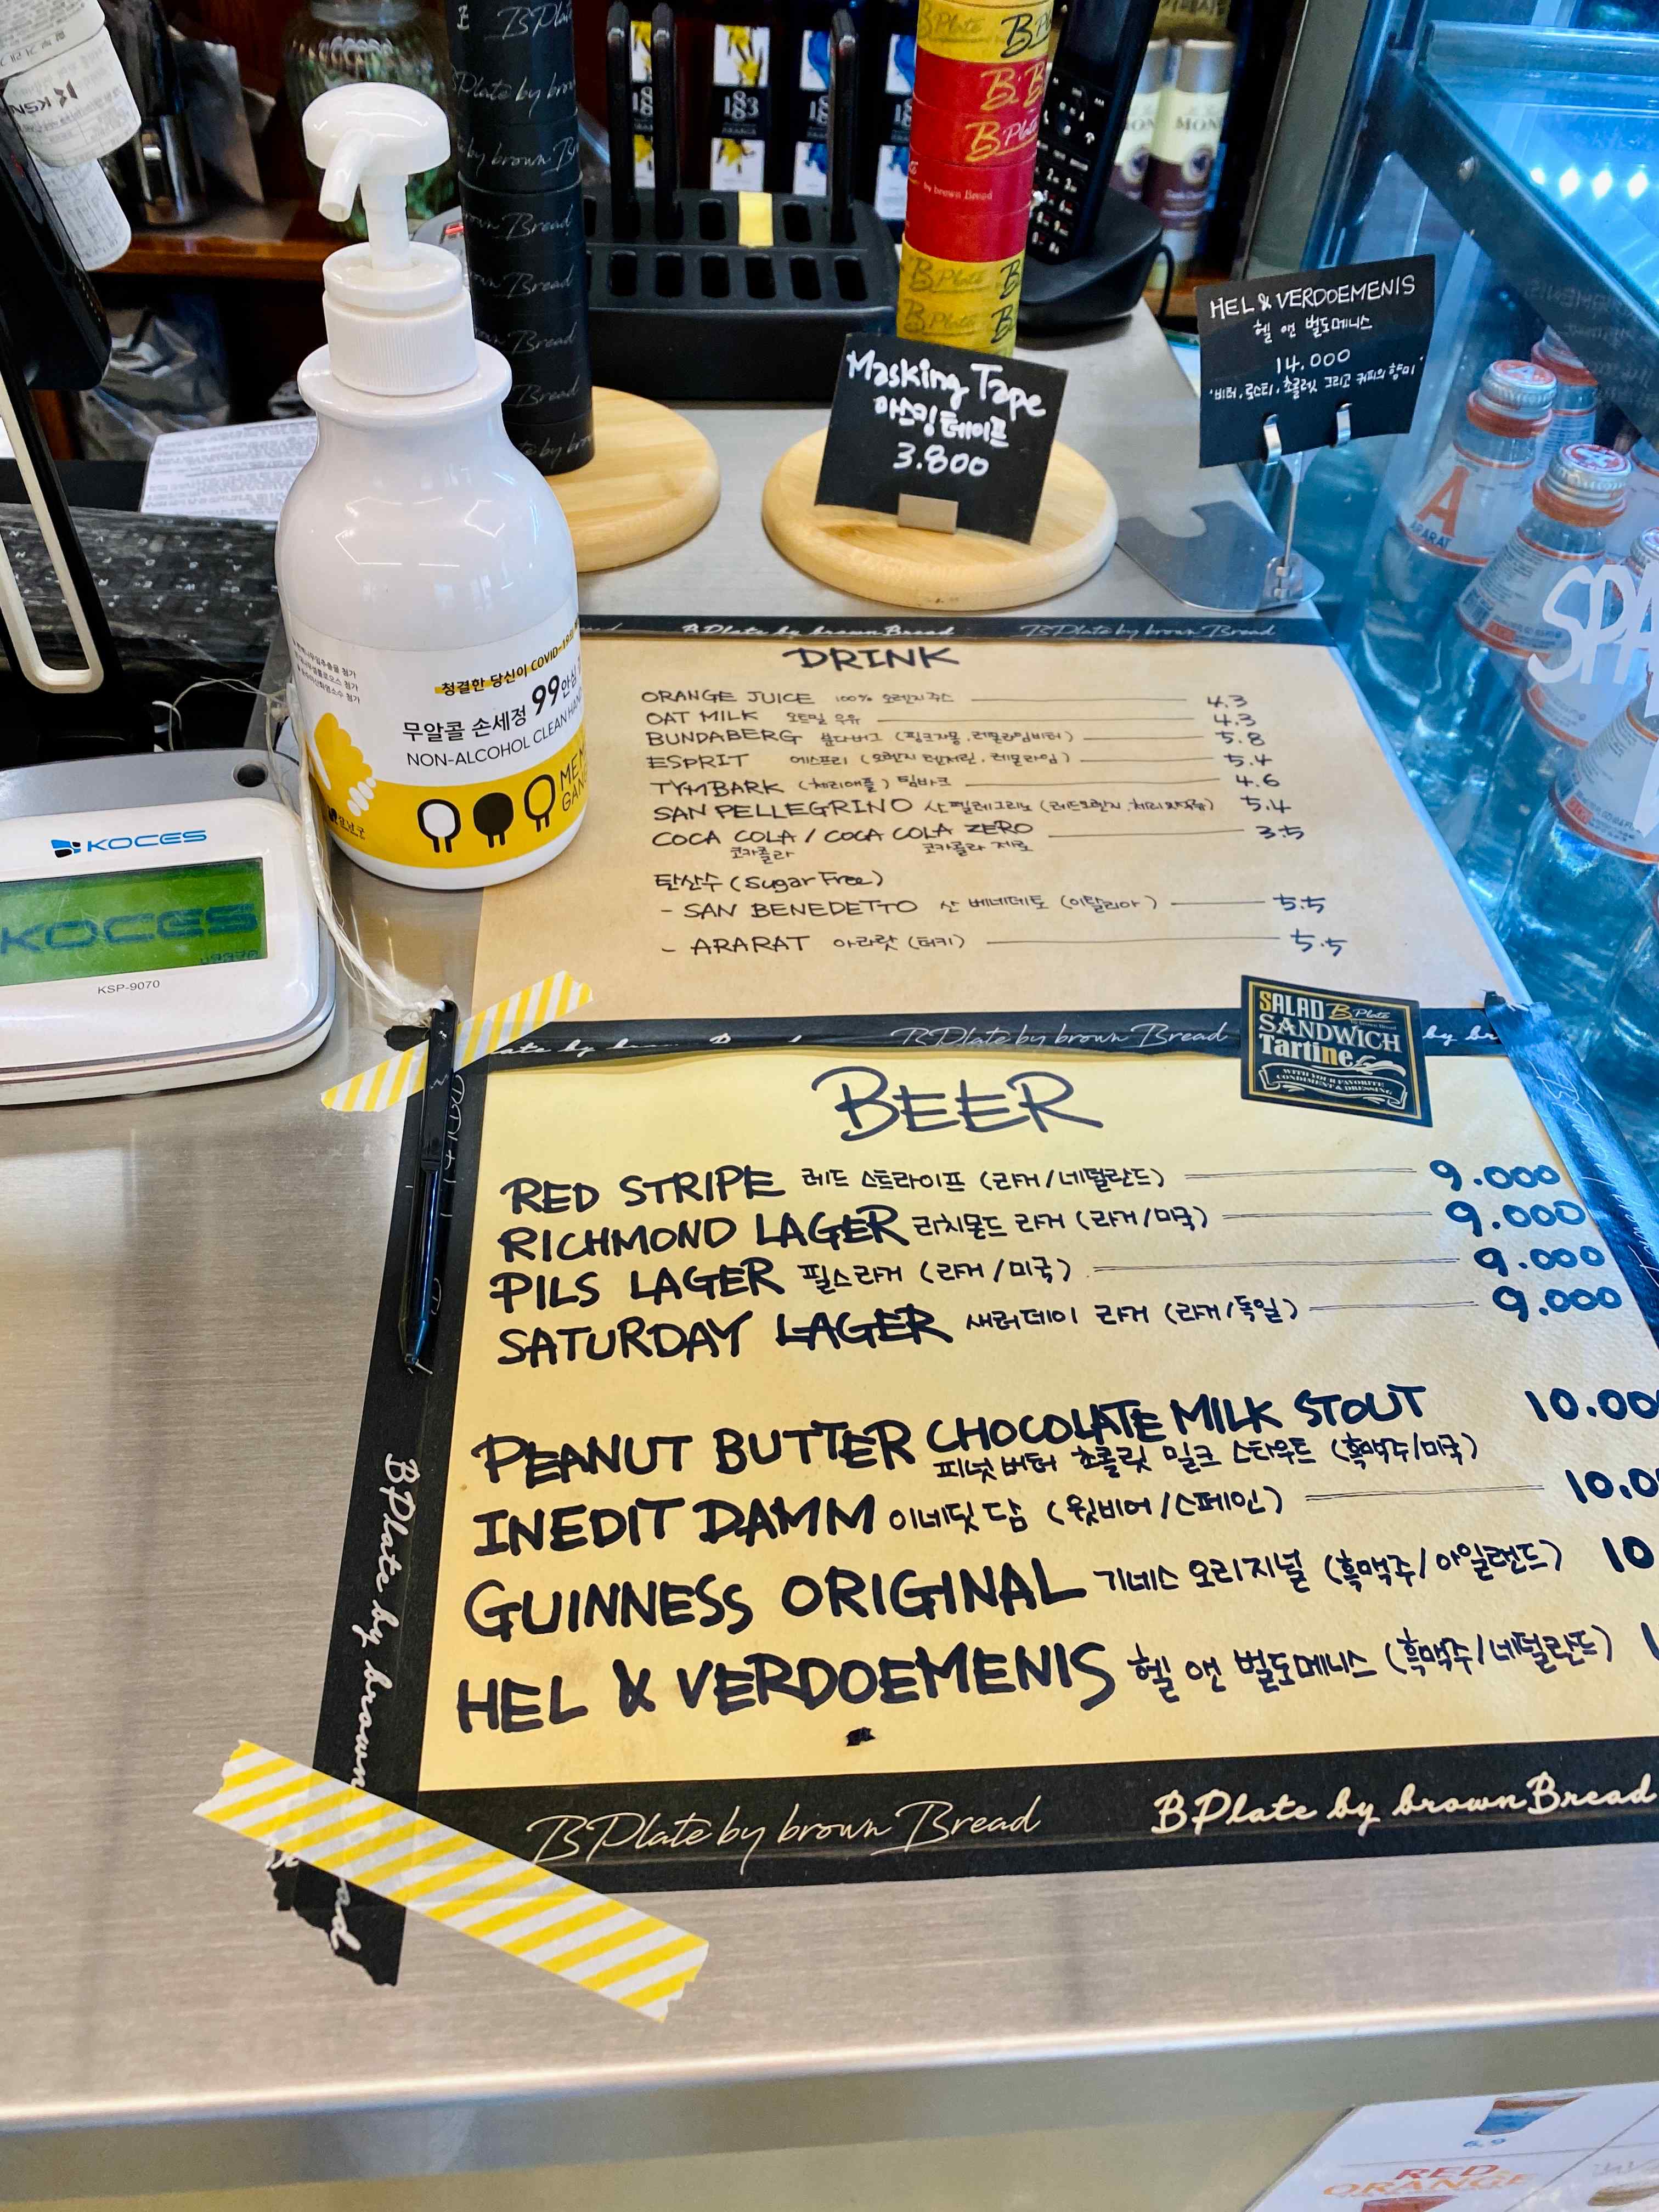 BPlate
Plate by brow
by brown Br
rown Bread
Bread
Bread
183
183
BPlate
B.B
BPlate
by brown Bread
BPlate
BPlate
MON
KSN
HEL & VERDOEMENIS
헬 앤 벌도메니스
14.000
"비터, 로스티, 초콜릿 그리고 커피의 향미"
Masking Tape
마스킹테이프
3.800
A
ARARAT
SPA
청결한 당신이 COVID-19의
무알콜 손세정 99안심
NON-ALCOHOL CLEAN HAN
KOCES
KOCES
KSP-9070
BPlate by brownBread BPlate by brown Bread
DRINK
ORANGE JUICE 100% 오렌지주스 4.3
OAT MILK 오트밀 우유 4.3
BUNDABERG 분다버그 (핑크자몽, 레몬라임비터) 5.8
ESPRIT 에스프리 (오렌지 탠저린, 레몬라임) 5.4
TYMBARK (체리애플) 팀바크 4.6
SAN PELLEGRINO 산펠레그리노 5.4
COCA COLA / COCA COLA ZERO 3.5
코카콜라 코카콜라 제로
탄산수 (Sugar Free)
- SAN BENEDETTO 산 베네데토 (이탈리아) 5.5
- ARARAT 아라랏 (터키) 5.5
BPlate by brown Bread
SALAD BPlate
SANDWICH
Tartine
WITH YOUR FAVORITE
CONDIMENT & DRESSING
BEER
RED STRIPE 레드 스트라이프 (라거/네덜란드) 9.000
RICHMOND LAGER 리치몬드 라거 (라거/미국) 9.000
PILS LAGER 필스라거 (라거/미국) 9.000
SATURDAY LAGER 새터데이 라거 (라거/독일) 9.000
PEANUT BUTTER CHOCOLATE MILK STOUT 10.00
피넛버터 초콜릿 밀크 스타우트 (흑맥주/미국)
INEDIT DAMM 이네딧 담 (윗비어/스페인) 10.0
GUINNESS ORIGINAL 기네스 오리지널 (흑맥주/아일랜드) 10
HEL & VERDOEMENIS 헬 앤 벌도메니스 (흑맥주/네덜란드) 1
BPlate by brown Bread BPlate by brownBread
BPlate by brown
ad
6.9
RED
ORANGE